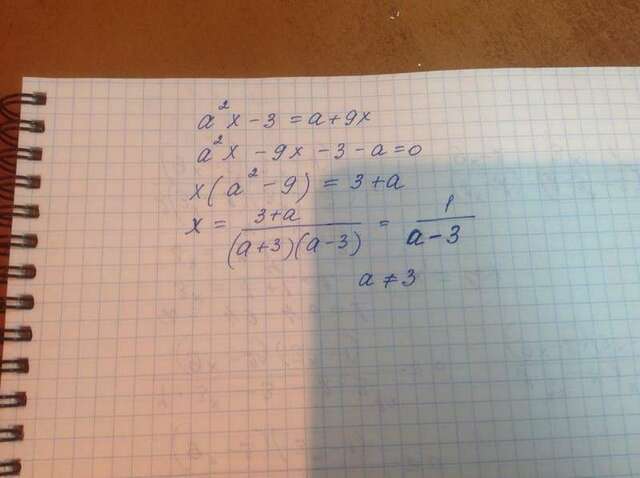 a² x - 3 = a + 9x
a² x - 9x - 3 - a = 0
x ( a² - 9 ) = 3 + a
x = 3+a / (a+3)(a-3) = 1 / a-3
a ≠ 3